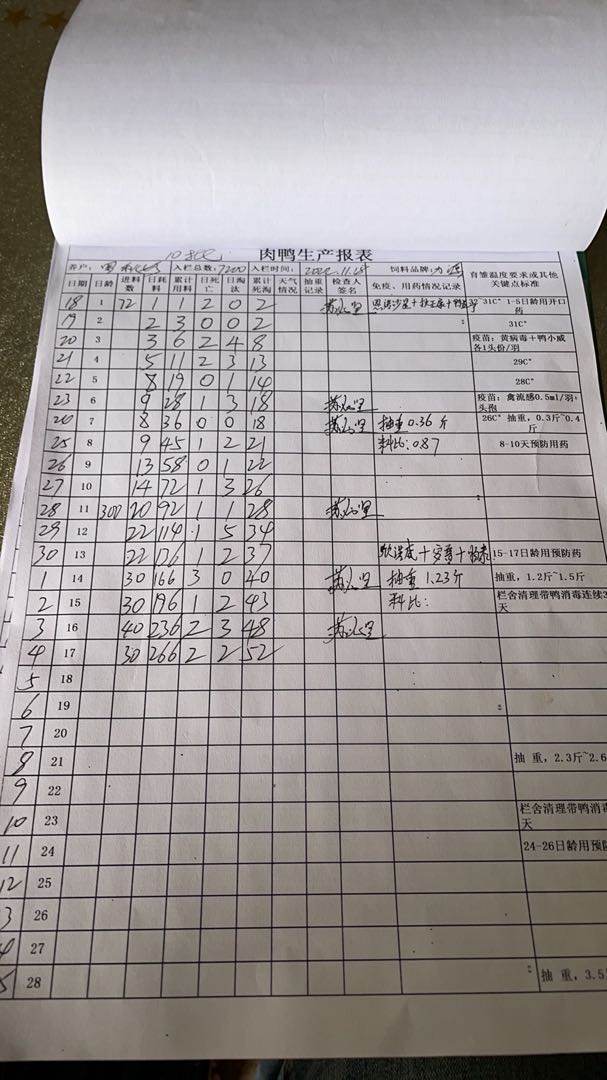 肉鸭生产报表
养户： 入栏总数：7200 入栏时间：2022.11.18 饲料品牌：
日期 日龄 进料数 日耗料 累计用料 日死亡 日淘汰 累计死淘 天气情况 抽重记录 检查人签名 免疫、用药情况记录 育雏温度要求或其他关键点标准
18 1 72 2 0 2 31C° 1-5日龄用开口药
19 2 2 3 0 0 2 31C°
20 3 3 6 2 4 8 疫苗：黄病毒＋鸭小威各1头份/羽
21 4 5 11 2 3 13 29C°
22 5 8 19 0 1 14 28C°
23 6 9 28 1 3 18 疫苗：禽流感0.5ml/羽+头孢
20 7 8 36 0 0 18 抽重0.36斤 26C° 抽重，0.3斤~0.4斤
25 8 9 45 1 2 21 料比：0.87 8-10天预防用药
26 9 13 58 0 1 22
27 10 14 72 1 3 26
28 11 300 20 92 1 1 28
29 12 22 114 1 5 34
30 13 22 136 1 2 37 15-17日龄用预防药
1 14 30 166 3 0 40 抽重1.23斤 抽重，1.2斤~1.5斤
2 15 30 196 1 2 43 料比： 栏舍清理带鸭消毒连续3天
3 16 40 236 2 3 48
4 17 30 266 2 2 52
5 18
6 19
7 20
8 21 抽 重，2.3斤~2.6
9 22
10 23 栏舍清理带鸭消毒 天
11 24 24-26日龄用预防
12 25
3 26
4 27
5 28 抽 重，3.5